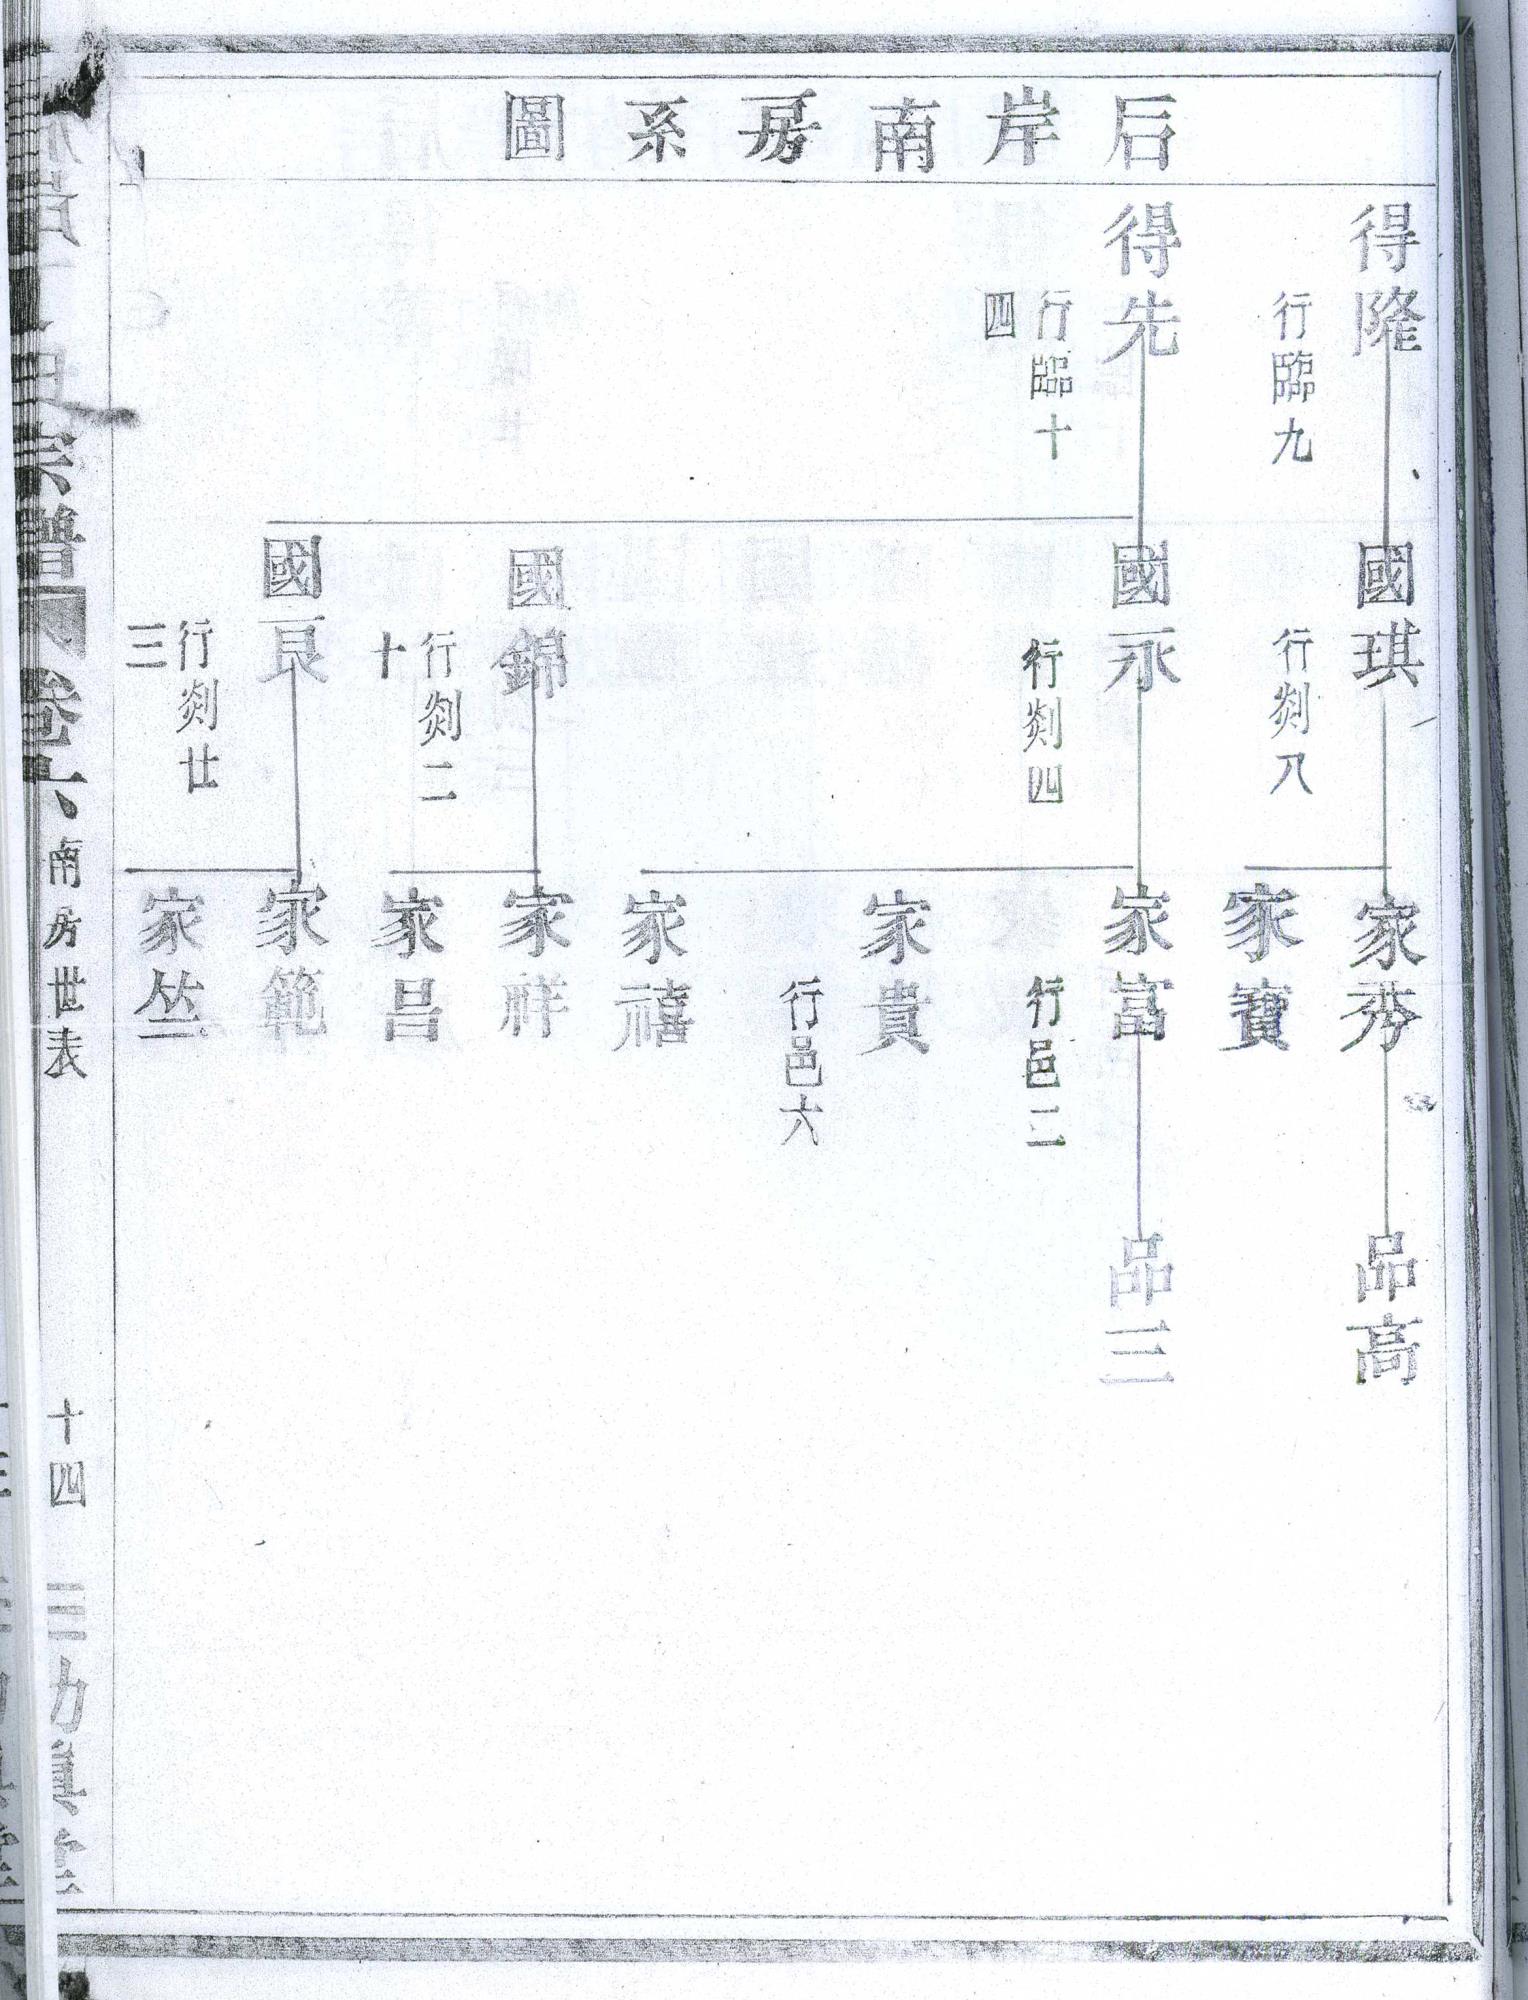 后岸南房系圖
得隆
行臨九
國琪
行剡八
家秀
家寶
品高
得先
行臨十
四
國永
行剡四
家富
行邑二
家貴
行邑六
家禧
品三
國錦
行剡二
十
家祥
家昌
國良
行剡廿
三
家範
家竺
宗譜
卷六
南房世表
十四